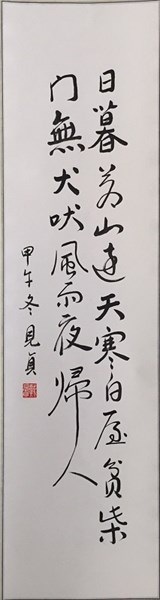 日暮苍山遠天寒白屋貧柴
门無犬吠風雨夜歸人
甲午冬見貞